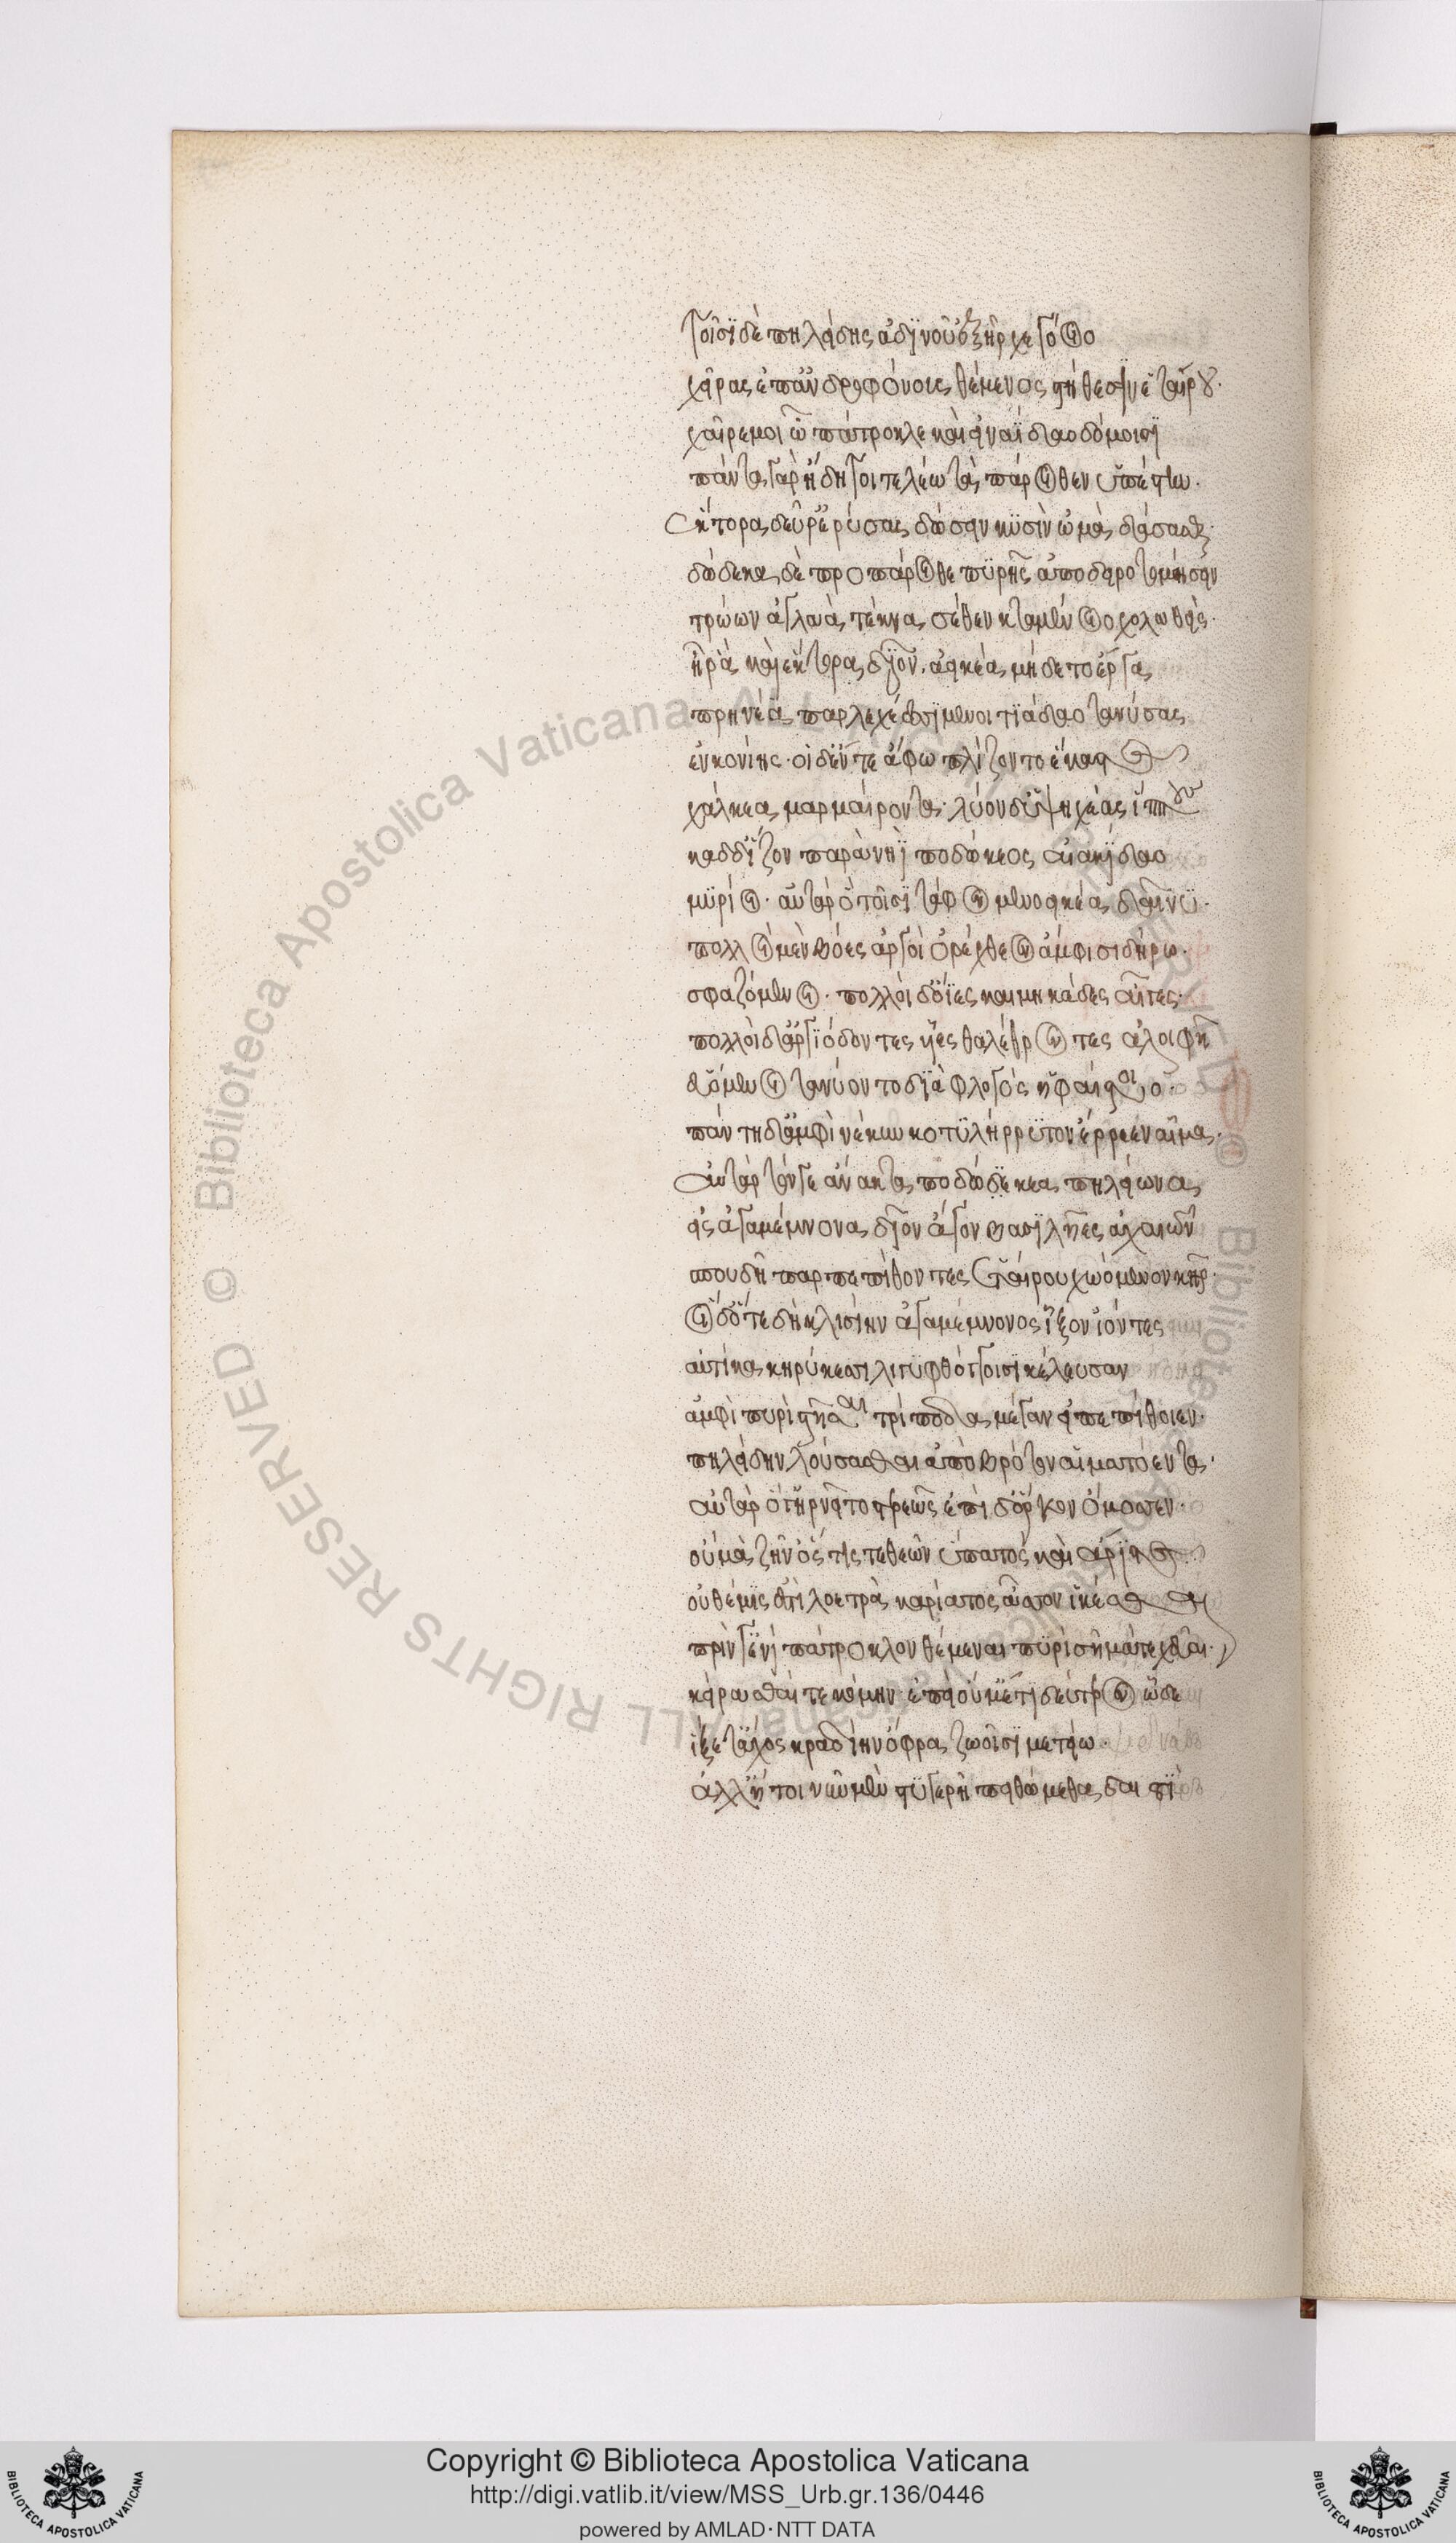 τοῖσι δὲ πηλείδης ἀδινοῦ ἐξῆρχε γόοιο
χεῖρας ἐπ' ἀνδροφόνους θέμενος στήθεσσιν ἑταίρου·
χαῖρέ μοι ὦ πάτροκλε καὶ εἰν ἀΐδαο δόμοισι
πάντα γὰρ ἤδη τοι τελέω τὰ πάροιθεν ὑπέστην·
Ἕκτορα δεῦρ' ἐρύσας δώσειν κυσὶν ὠμὰ δάσασθαι·
δώδεκα δὲ προπάροιθε πυρῆς ἀποδειροτομήσειν
τρώων ἀγλαὰ τέκνα σέθεν κταμένοιο χολωθείς·
ἦ ρα καὶ ἕκτορα δῖον ἀεικέα μήδετο ἔργα
πρηνέα παρ λεχέεσσι μενοιτιάδαο τανύσας
ἐν κονίῃς· οἱ δ' ἔντε' ἀφωπλίζοντο ἕκαστος
χάλκεα μαρμαίροντα· λύον δ' ὑψηχέας ἵππους
καδδ' ἷζον παρὰ νηῒ ποδώκεος αἰακίδαο
μυρίοι· αὐτὰρ ὃ τοῖσι τάφον μενοεικέα δαίνυ·
πολλοὶ μὲν βόες ἀργοὶ ὀρέχθεον ἀμφὶ σιδήρω·
σφαζόμενοι· πολλοὶ δ' ὄϊες καὶ μηκάδες αἶγες·
πολλοὶ δ' ἀργιόδοντες ὕες θαλέθοντες ἀλοιφῇ
εὑόμενοι τανύοντο διὰ φλογὸς ἡφαίστοιο·
πάντη δ' ἀμφὶ νέκυν κοτυλήρρυτον ἔρρεεν αἷμα·
Αὐτὰρ τόνγε ἄνακτα ποδώκεα πηλείωνα
εἰς ἀγαμέμνονα δῖον ἄγον βασιλῆες ἀχαιῶν
σπουδῇ παρπεπιθόντες ἑταίρου χωόμενον κῆρ·
οἱ δ' ὅτε δὴ κλισίην ἀγαμέμνονος ἷξον ἰόντες
αὐτίκα κηρύκεσσι λιγυφθόγγοισι κέλευσαν
ἀμφὶ πυρὶ στῆσαι τρίποδα μέγαν εἰ πεπίθοιεν·
πηλείδην λούσασθαι ἀπὸ βρότον αἱματόεντα·
αὐτὰρ ὅ γ' ἠρνεῖτο στερεῶς ἐπὶ δ' ὅρκον ὄμοσσεν·
οὐ μὰ ζῆν' ὅς τίς τε θεῶν ὕπατος καὶ ἄριστος
οὐ θέμις ἐστὶ λοετρὰ καρήατος ἆσσον ἱκέσθαι
πρίν γ' ἐνὶ πάτροκλον θέμεναι πυρὶ σῆμά τε χεῦαι·
κείρασθαί τε κόμην· ἐπεὶ οὔ μ' ἔτι δεύτερον ὧδε
ἵξετ' ἄχος κραδίην ὄφρα ζωοῖσι μετείω·
ἀλλ' ἤτοι νῦν μὲν στυγερῇ πειθώμεθα δαιτί
Copyright © Biblioteca Apostolica Vaticana
http://digi.vatlib.it/view/MSS_Urb.gr.136/0446
powered by AMLAD·NTT DATA